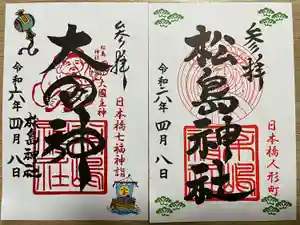 参拝
松島神社
日本橋人形町
令和六年四月八日
参拝
大国神
日本橋七福神詣
令和六年四月八日
松島神社